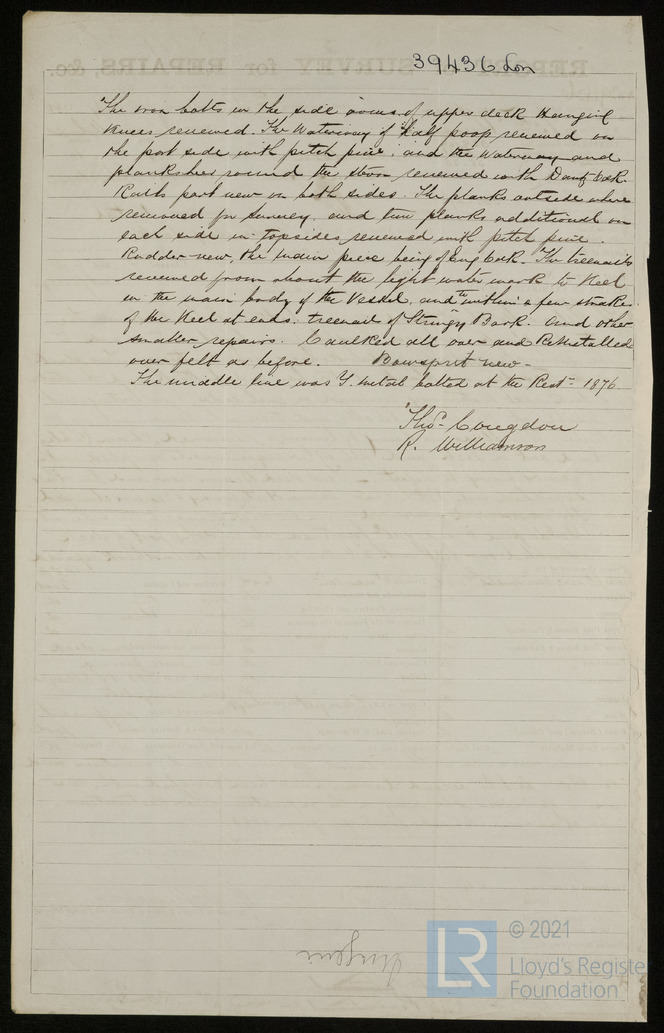 39436 Lon
The iron bolts in the side arms of upper deck Hanging
Knees renewed. The Waterway of half poop renewed on
the port side with pitch pine, and the Waterway and
planksheer round the stern renewed with Dantz Oak.
Rails part new on both sides. The planks outside where
removed for survey, and two planks additional on
each side in topsides renewed with pitch pine.
Rudder new, the main piece being of Eng Oak. The treenails
renewed from about the light water mark to Keel
in the main body of the Vessel, and to within a few strakes
of the Keel at ends. treenail of Stringy Bark. And other
smaller repairs. Caulked all over and ReMetalled
over felt as before. Bowsprit new -
The middle line was Y. metal bolted at the Rest- 1876
Thos. Congdon
R. Williamson
REPORT of SURVEY for REPAIRS, &c.
Umgeni
LR
© 2021
Lloyd's Register
Foundation